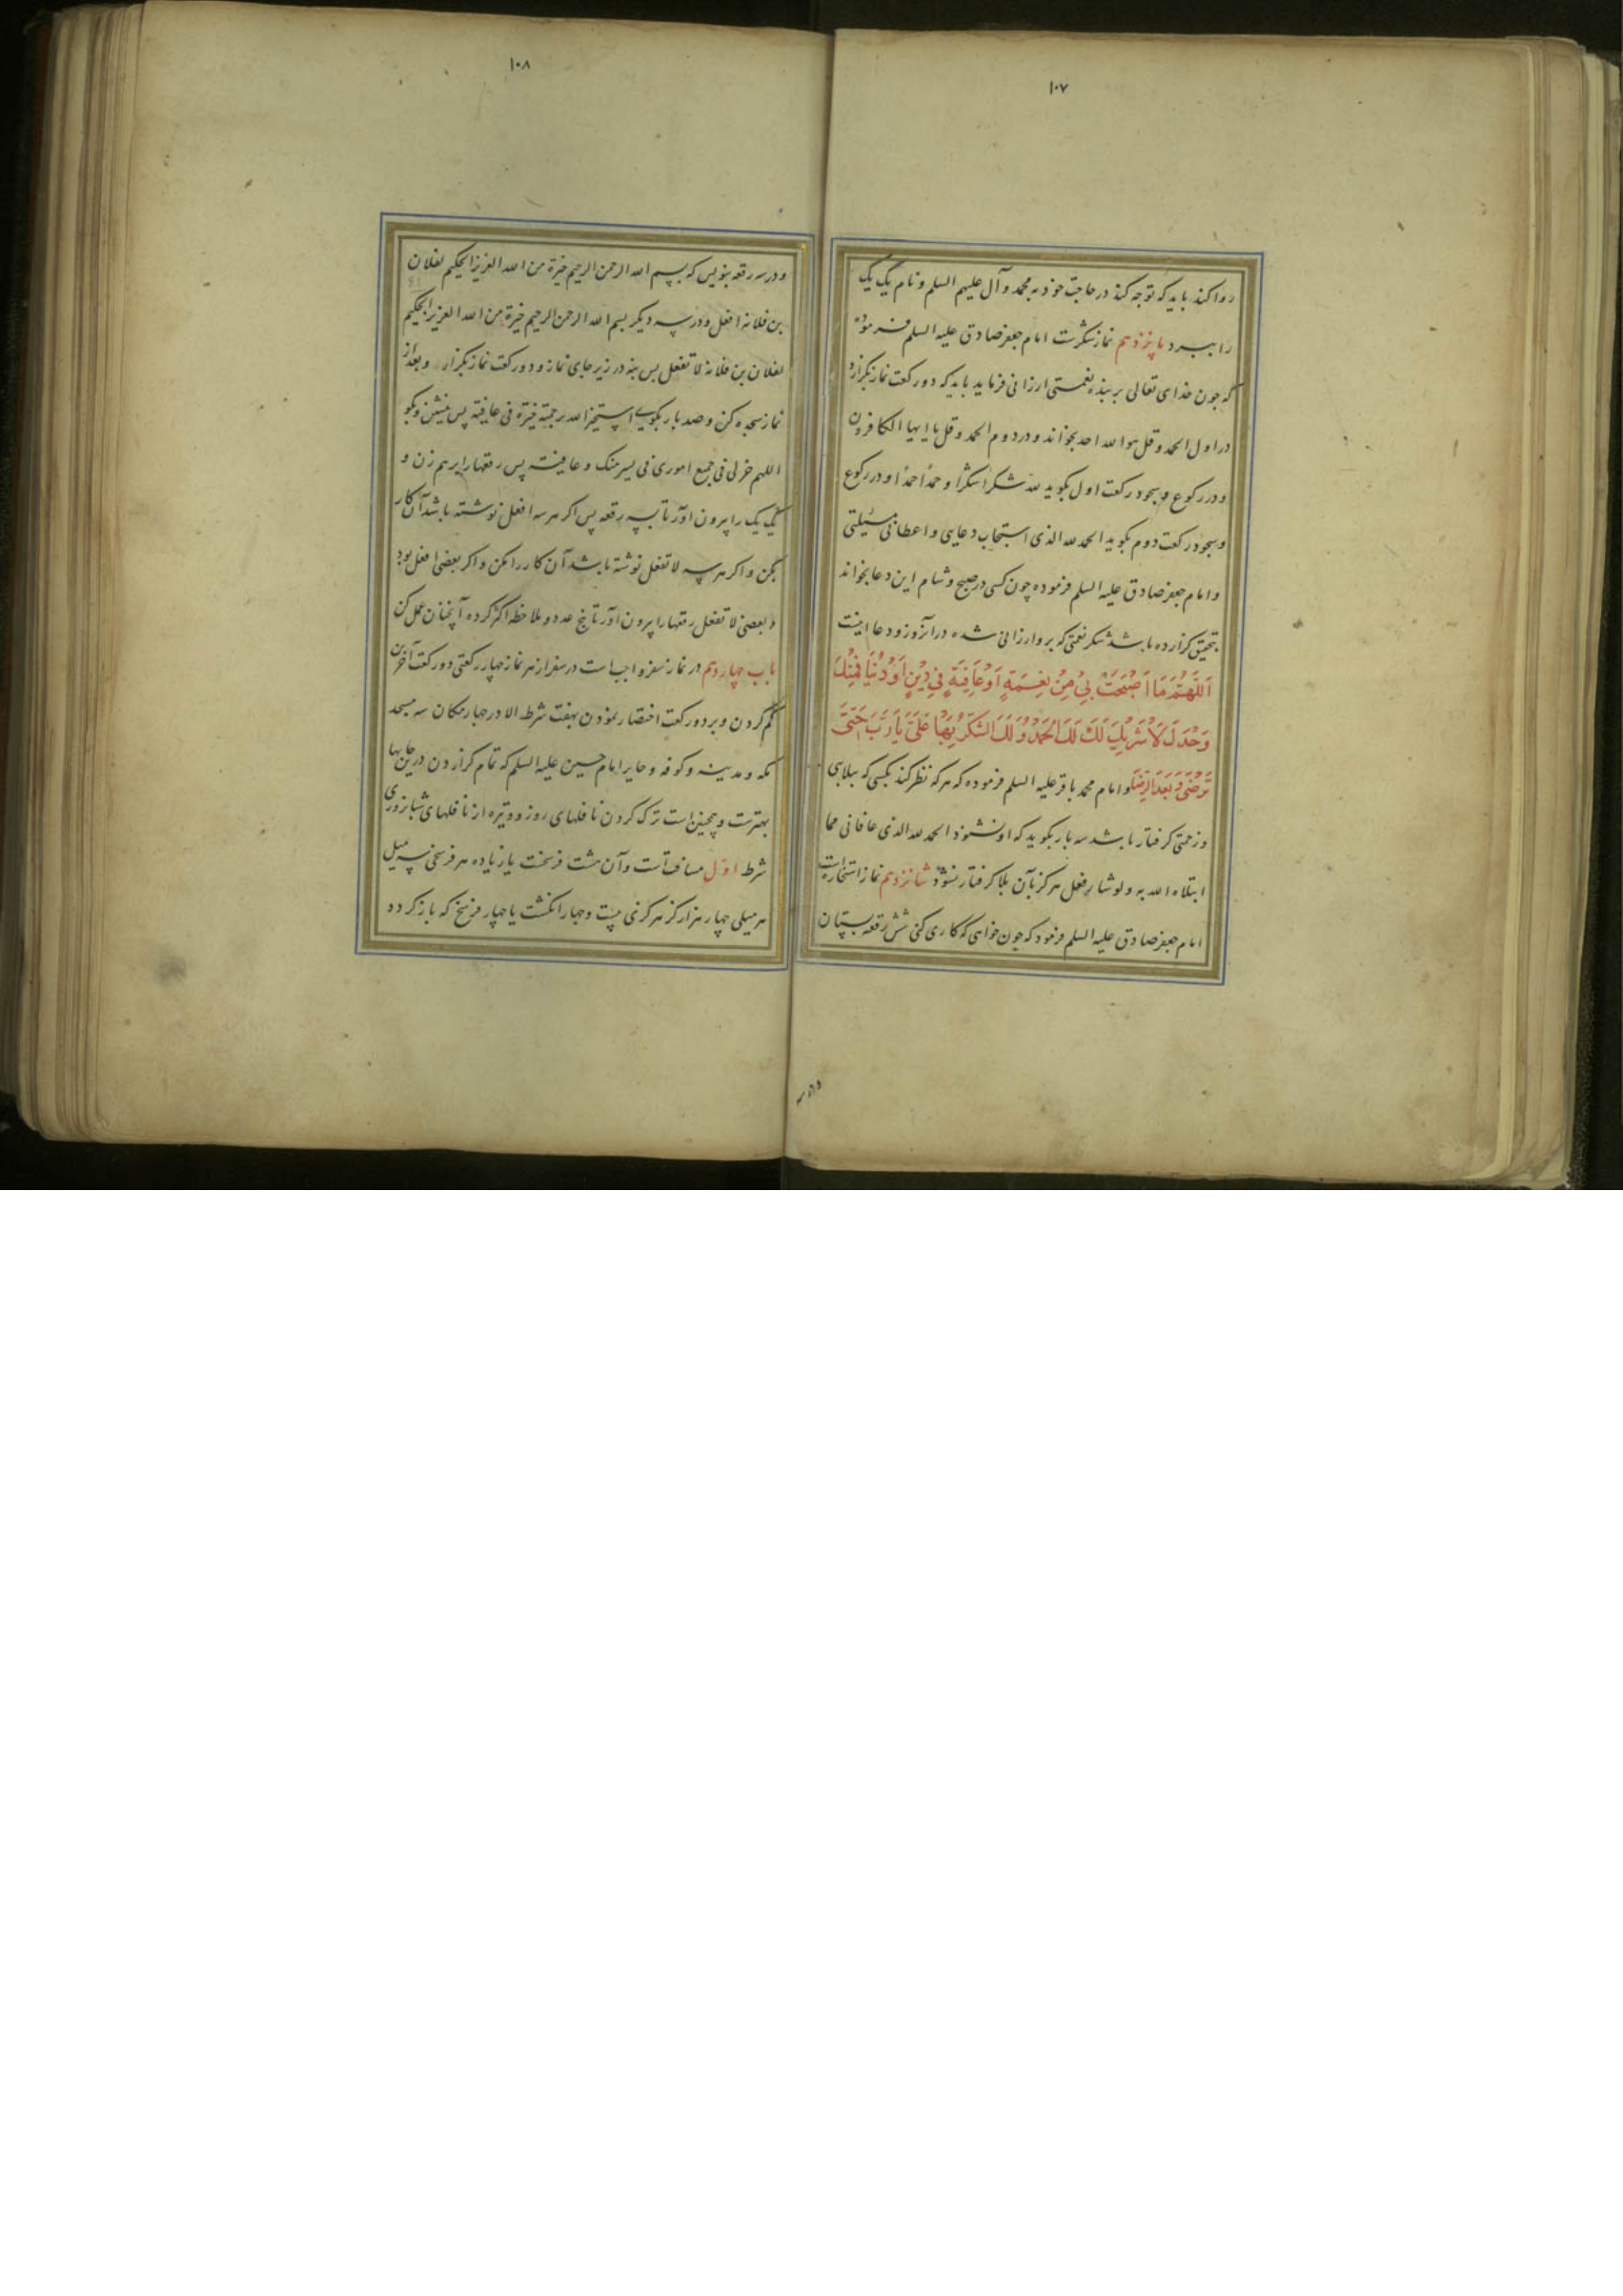 ۱۰۷
روا کند باید که توجه کند در حاجت خود به محمد و آل علیهم السلم و نام یک یک
را ببرد پانزدهم نماز شکرست امام جعفر صادق علیه السلم فرموده
که چون خدای تعالی بر بنده نعمتی ارزانی فرماید باید که دو رکعت نماز بکزارد
در اول الحمد و قل هو الله احد بخواند و در دوم الحمد و قل یا ایها الکافرون
و در رکوع و سجود رکعت اول بکوید لله شکرا شکرا و حمدا حمدا و در رکوع
و سجود رکعت دوم بکوید الحمد لله الذی استجاب دعایی و اعطانی مسئلتی
و امام جعفر صادق علیه السلم فرموده چون کسی در صبح و شام این دعا بخواند
بتحقیق کزارده باشد شکر نعمتی که برو ارزانی شده در آنروز و دعا اینست
اَللّهُمَّ مَا اَصْبَحَتْ بِي مِنْ نِعْمَةٍ اَوْ عَافِيَةٍ فِي دِيْنٍ اَوْ دُنْيَا فَمِنْكَ
وَحْدَكَ لَا شَرِيْكَ لَكَ لَكَ الْحَمْدُ وَ لَكَ الشُّكْرُ بِهَا عَلَيَّ يَا رَبِّ حَتّى
تَرْضى وَ بَعْدَ الرِّضَا و امام محمد باقر علیه السلم فرموده که هر که نظر کند بکسی که ببلایی
و زحمتی کرفتار باشد سه بار بکوید که او نشنود الحمد لله الذی عافانی مما
ابتلاه الله به و لو شاء فعل هرکز بآن بلا کرفتار نشود شانزدهم نماز استخارتست
امام جعفر صادق علیه السلم فرمود که چون خواهی که کاری کنی شش رقعه بستان
ودر سه
۱۰۸
و در سه رقعه بنویس که بسم الله الرحمن الرحیم خیرة من الله العزیز الحکیم لفلان
بن فلانه افعل و در سه دیکر بسم الله الرحمن الرحیم خیرة من الله العزیز الحکیم
لفلان بن فلانه لا تفعل پس بنه در زیر جای نماز و دو رکعت نماز بکزار و بعد از
نماز سجده کن و صد بار بکوی استخیر الله برحمته خیرة فی عافیة پس بنشین و بکو
اللهم خر لی فی جمیع اموری فی یسر منک و عافیة پس رقعها را بر هم زن و
یک یک را بیرون آور تا سه رقعه پس اکر هر سه افعل نوشته باشد آن کار
بکن و اکر هر سه لا تفعل نوشته باشد آن کار را مکن و اکر بعضی افعل بود
و بعضی لا تفعل رقعها را بیرون آور تا پنج عدد و ملاحظه اکثر کرده آنچنان عمل کن
باب چهاردهم در نماز سفر واجب است در سفر از هر نماز چهار رکعتی دو رکعت آخرین
کم کردن و بر دو رکعت اختصار نمودن بهفت شرط الا در چهار مکان سه مسجد
مکه و مدینه و کوفه و حایر امام حسین علیه السلم که تمام کزاردن در این جایها
بهترست و همچنین است ترک کردن نافلهای روز و وتیره از نافلهای شبانروزی
شرط اول مسافتست و آن هشت فرسخست یا زیاده هر فرسخی سه میل
هر میلی چهار هزار کز هر کزی بیست و چهار انکشت یا چهار فرسخ که باز کردد